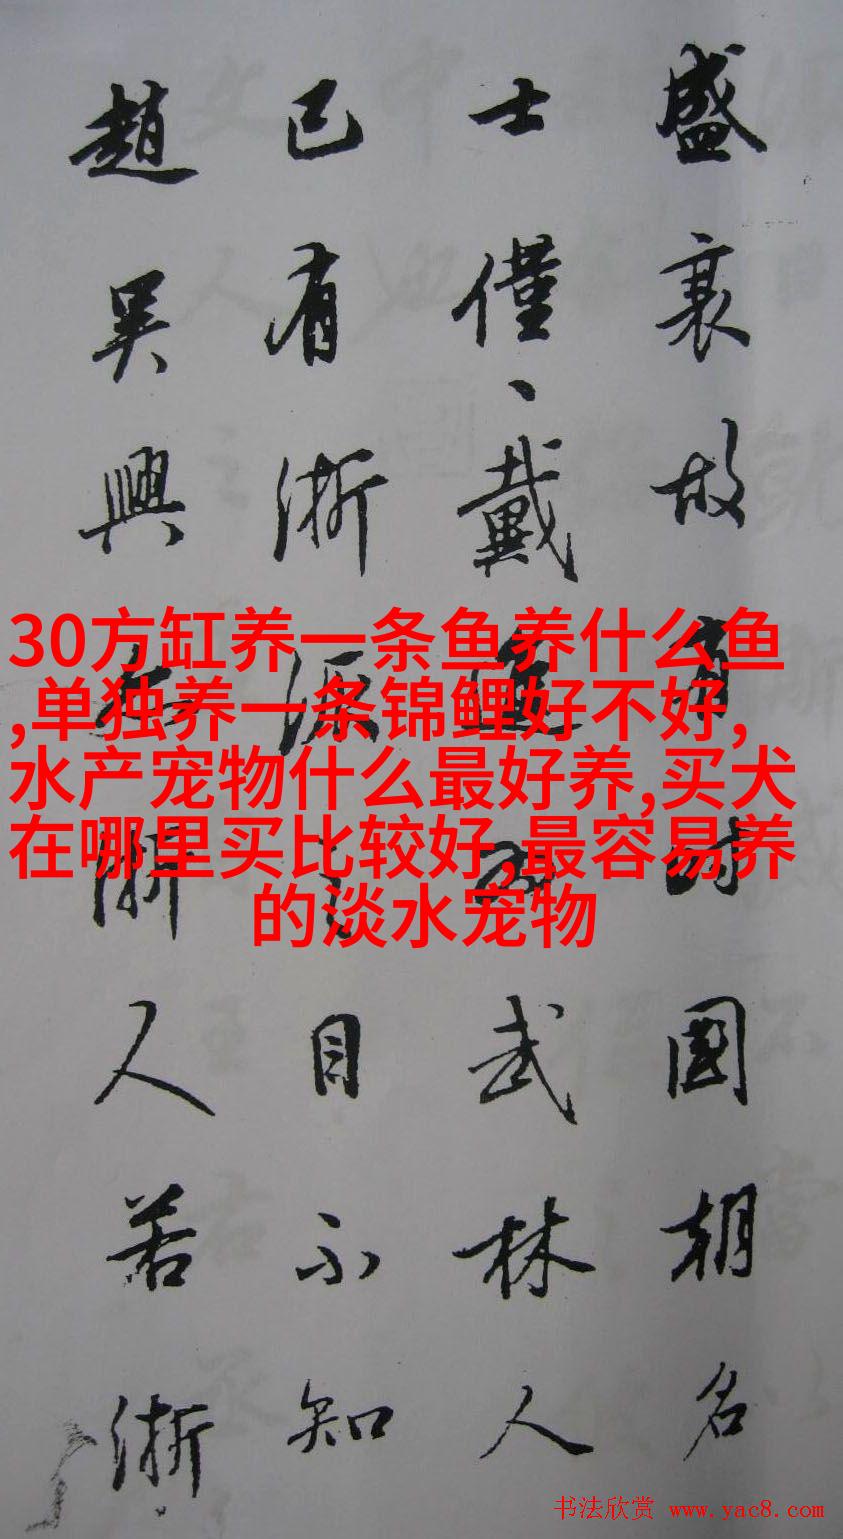 盛衰故有時國朝名
士僅、戴進為武林人
已有浙派之目不知
趙吳興亦浙人若浙
30方缸养一条鱼养什么鱼
,单独养一条锦鲤好不好,
水产宠物什么最好养,买犬
在哪里买比较好,最容易养
的淡水宠物
书法欣赏 www.yac8.com